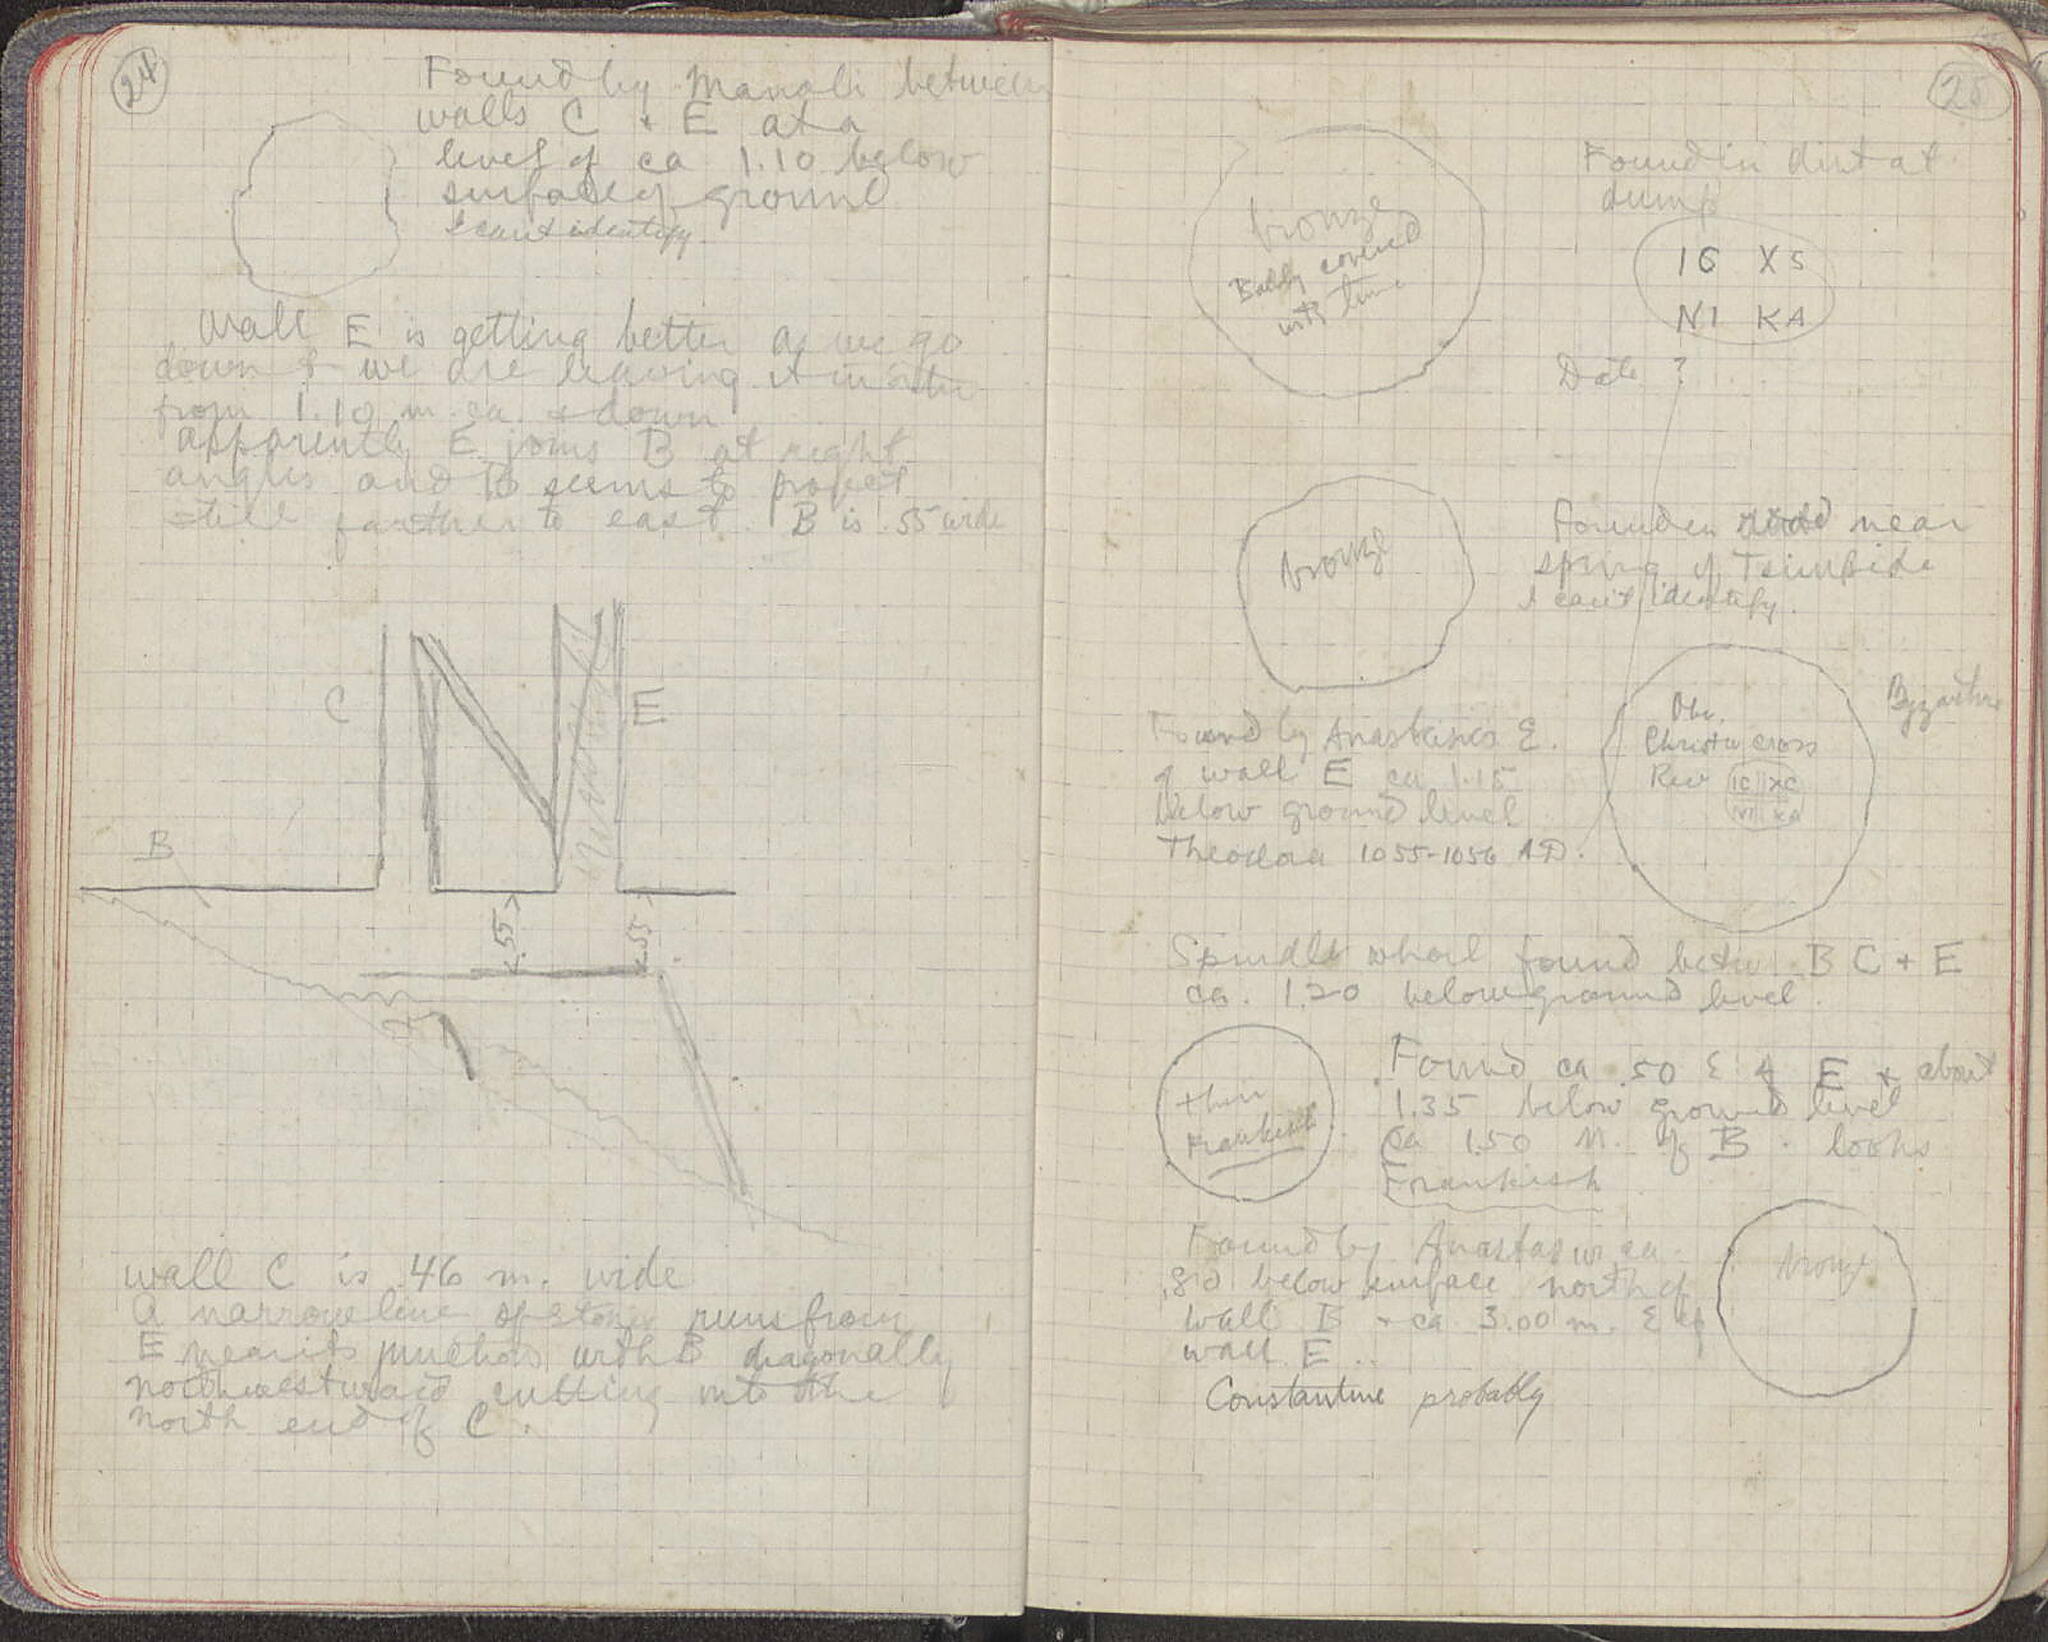 24
Found by Manoli between
walls C + E at a
level of ca 1.10 below
surface of ground
I can't identify.
Wall E is getting better as we go
down & we are leaving it in situ
from 1.10 m. ca. & down
apparently E joins B at right
angles and B seems to project
still farther to east. B is .55 wide
C
E
B
.55
.55
wall C is .46 m. wide
A narrow line of stones runs from
E near its junction with B diagonally
northwestward cutting into the
north end of C.
25
bronze
Badly covered
with lime
Found in dirt at
dump
IG XS
NI KA
Date ?
bronze
found in near
spring of
I can't identify.
Found by Anastasios E.
of wall E ca 1.15
below ground level
Theodora 1055-1056 A.D.
Obv.
Christ w cross
Rev IC XC
NI KA
Byzantine
Spindle whorl found betw. B C + E
ca. 1.20 below ground level.
thin
Frankish
Found ca .50 E of E & about
1.35 below ground level
ca 1.50 N. of B. looks
Frankish
Found by Anastasios ca.
.80 below surface north of
wall B & ca 3.00 m. E of
wall E.
Constantine probably
bronze